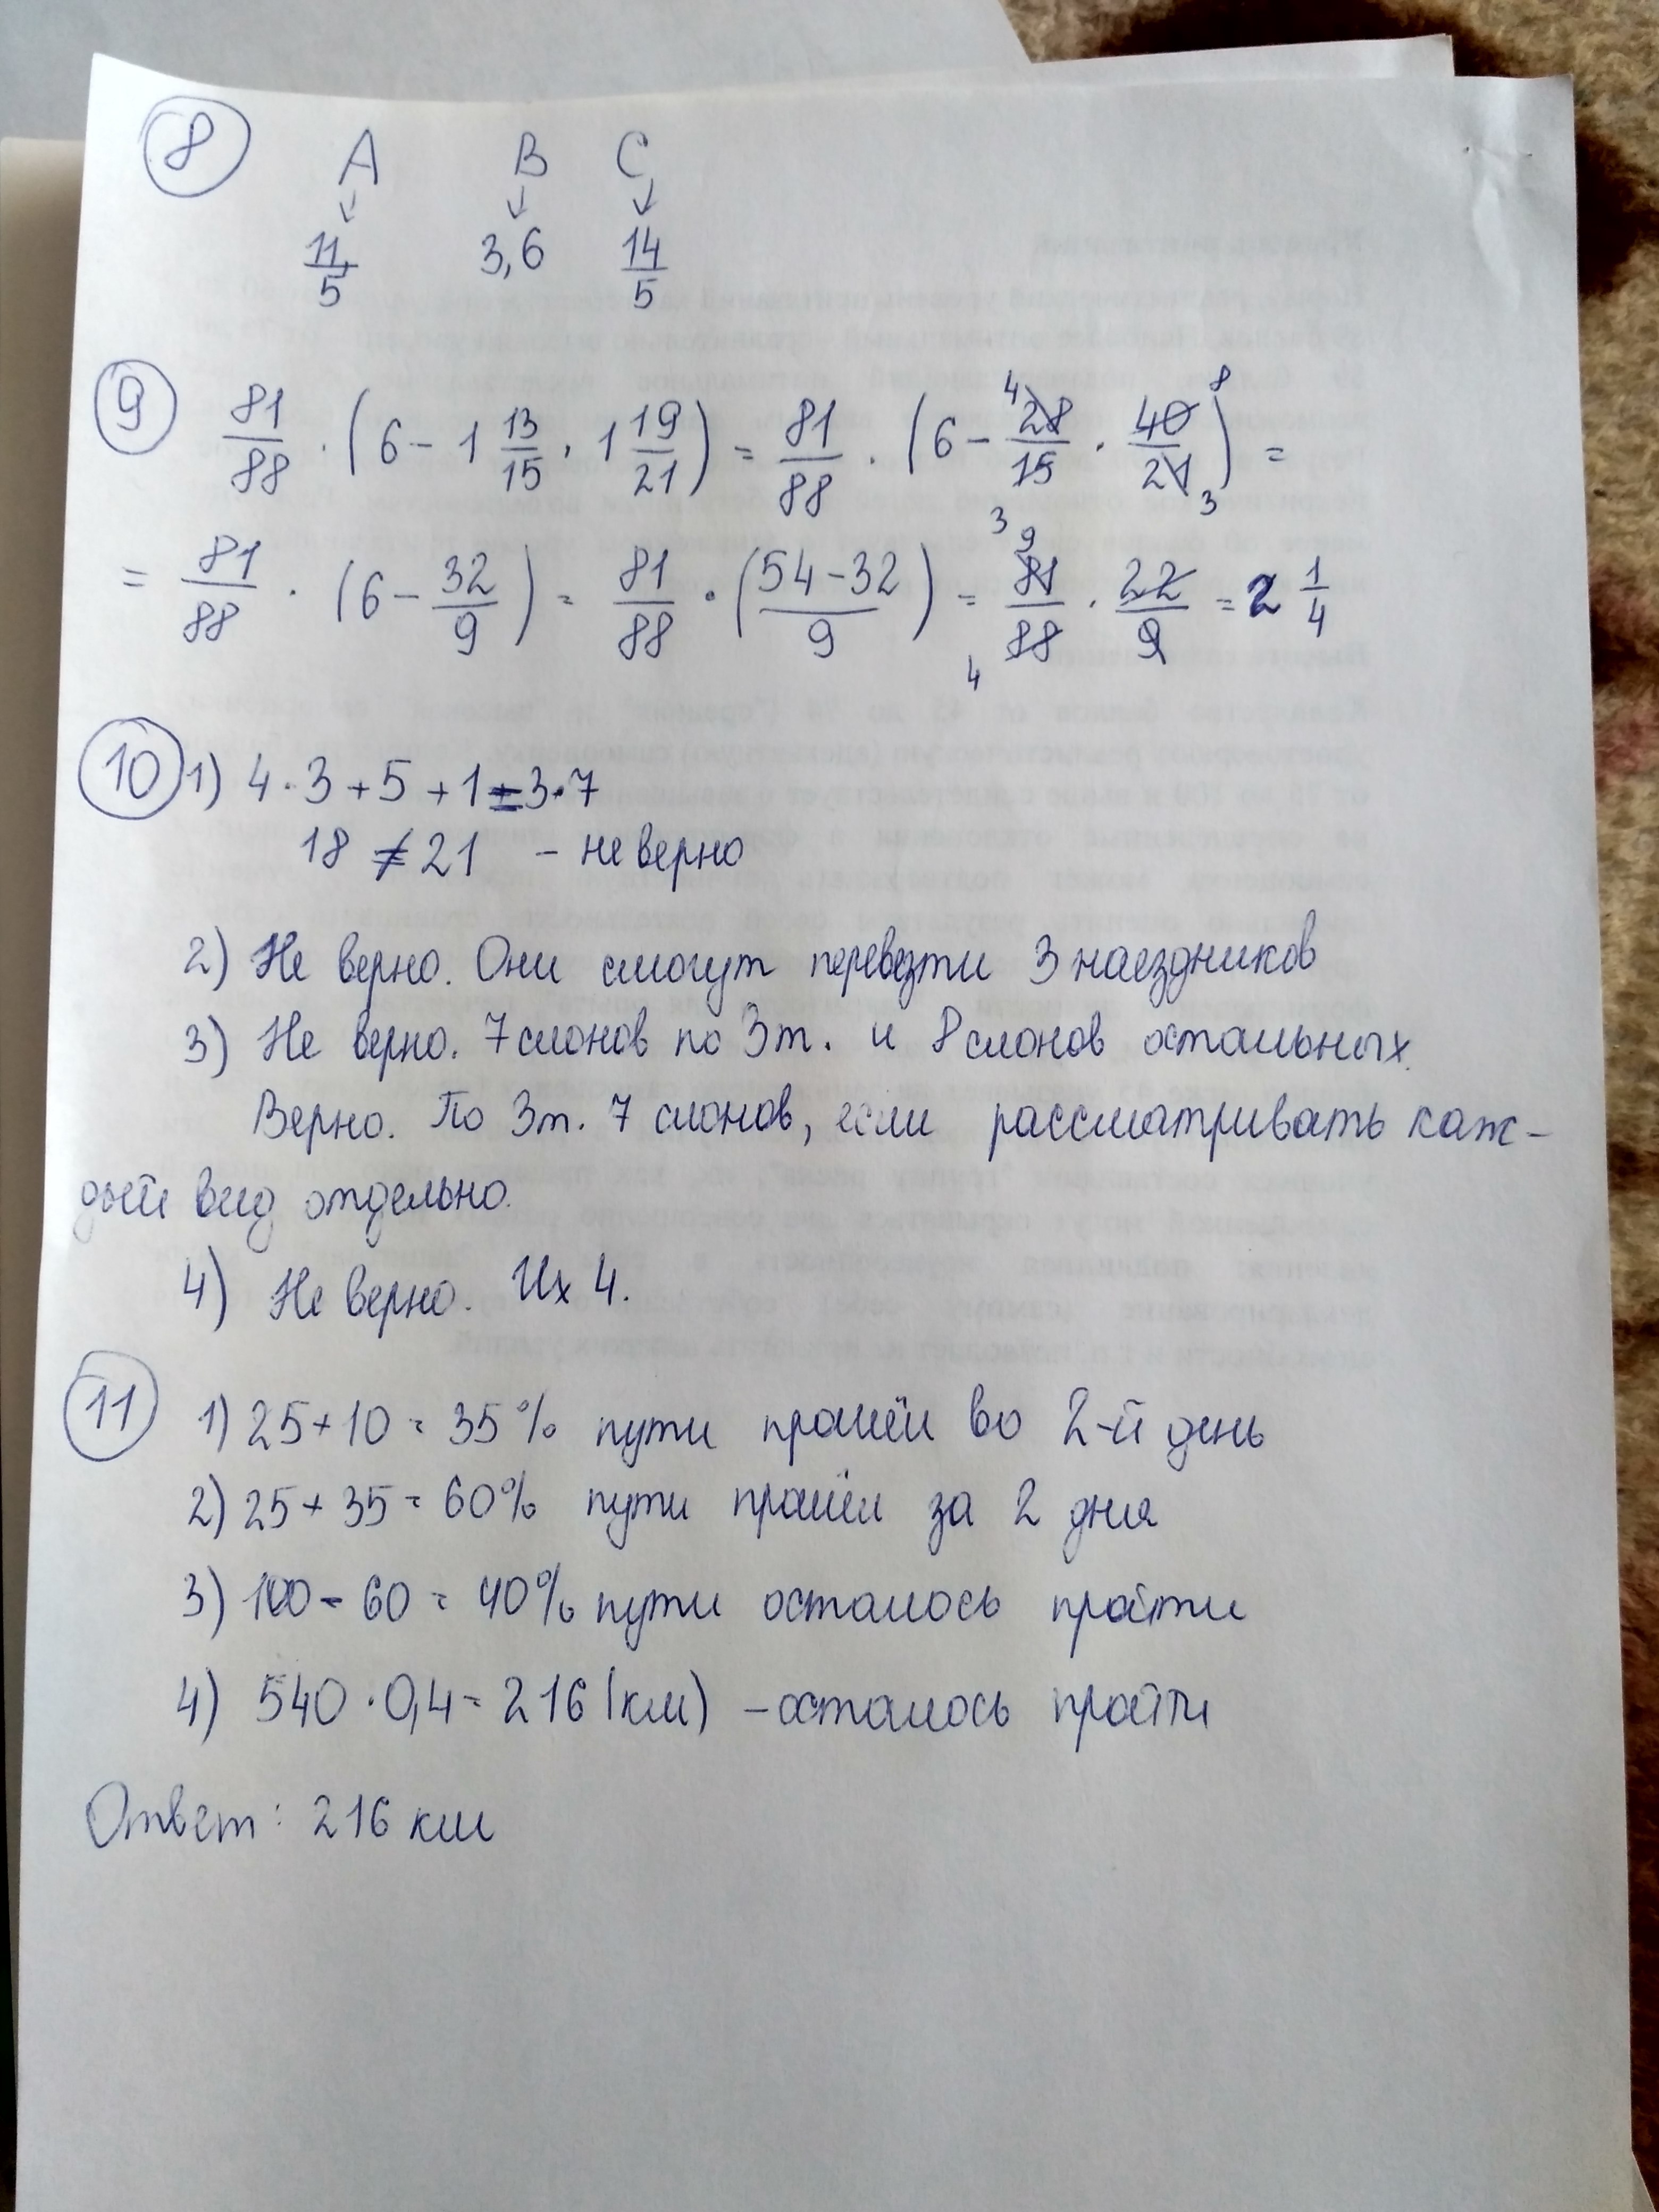 8 A B C
↓ ↓ ↓
11/5 3,6 14/5
9 81/88 · (6 - 1 13/15 · 1 19/21) = 81/88 · (6 - 28/15 · 40/21) =
= 81/88 · (6 - 32/9) = 81/88 · (54-32/9) = 81/88 · 22/9 = 2 1/4
10 1) 4 · 3 + 5 + 1 = 3 · 7
18 ≠ 21 - не верно
2) Не верно. Они смогут перевезти 3 наездников
3) Не верно. 7 слонов по 3т. и 8 слонов остальных.
Верно. По 3т. 7 слонов, если рассматривать каж-
дый вид отдельно.
4) Не верно. Их 4.
11 1) 25 + 10 = 35% пути прошёл во 2-й день
2) 25 + 35 = 60% пути прошёл за 2 дня
3) 100 - 60 = 40% пути осталось пройти
4) 540 · 0,4 = 216 (км) - осталось пройти
Ответ: 216 км